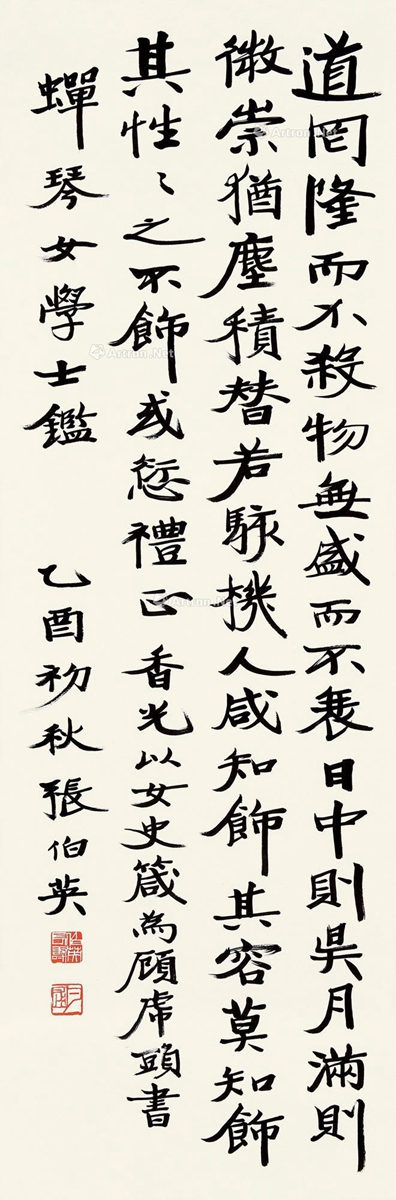 道罔隆而不殺物無盛而不衰日中則昃月滿則
微崇猶塵積替若駭機人咸知飾其容莫知飾
其性〻之不飾或愆禮正香光以女史箴為顧虎頭書
蟬琴女學士鑑 乙酉初秋張伯英
Artron.Net
Artron.Net
Artron.Net